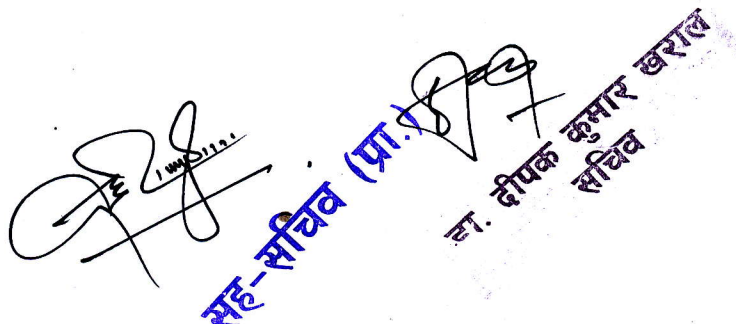 सह-सचिव (प्रा.)
डा. दीपक कुमार खराल
सचिव